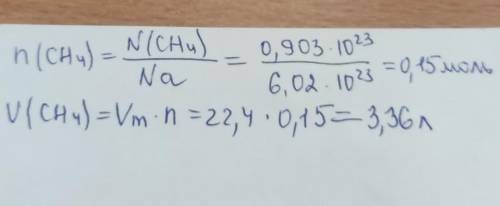 n(CH4) = N(CH4) / Na = 0,903·10²³ / 6,02·10²³ = 0,15 моль
V(CH4) = Vm·n = 22,4·0,15 = 3,36 л